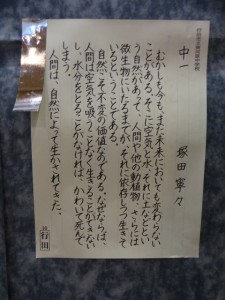 中一 塚田寧々
むかしも今も、また未来においても変わらない
ことがある。そこに空気と水、それに土などとい
う自然があって、人間や他の動植物、さらには
微生物にいたるまでが、それに依存しつつ生きて
いるということである。
自然こそ不変の価値なのである。なぜならば、
人間は空気を吸うことなく生きることができない
し、水分をとることがなければ、かわいて死んで
しまう。
人間は、自然によって生かされてきた。
行田